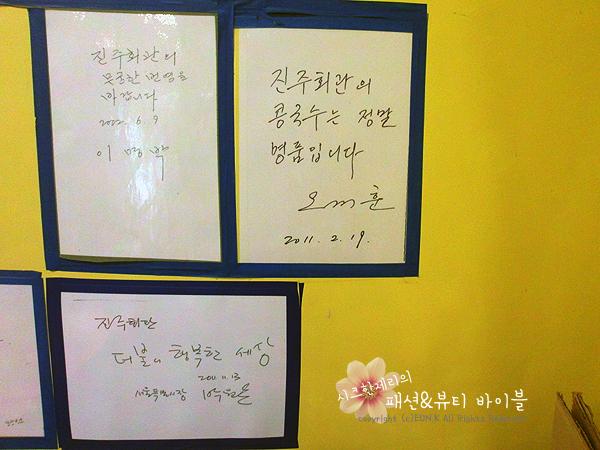 진주회관의
무궁한 번영을
바랍니다
2002. 6. 9
이 명 박
진주회관의
콩국수는 정말
명품입니다
오세훈
2011. 2. 19.
진주회관
더불어 행복한 세상
2011.11.13
서울특별시장 박원순
시크한제리의
패션&뷰티 바이블
copyright (c)EUN.K All Rights Reserved